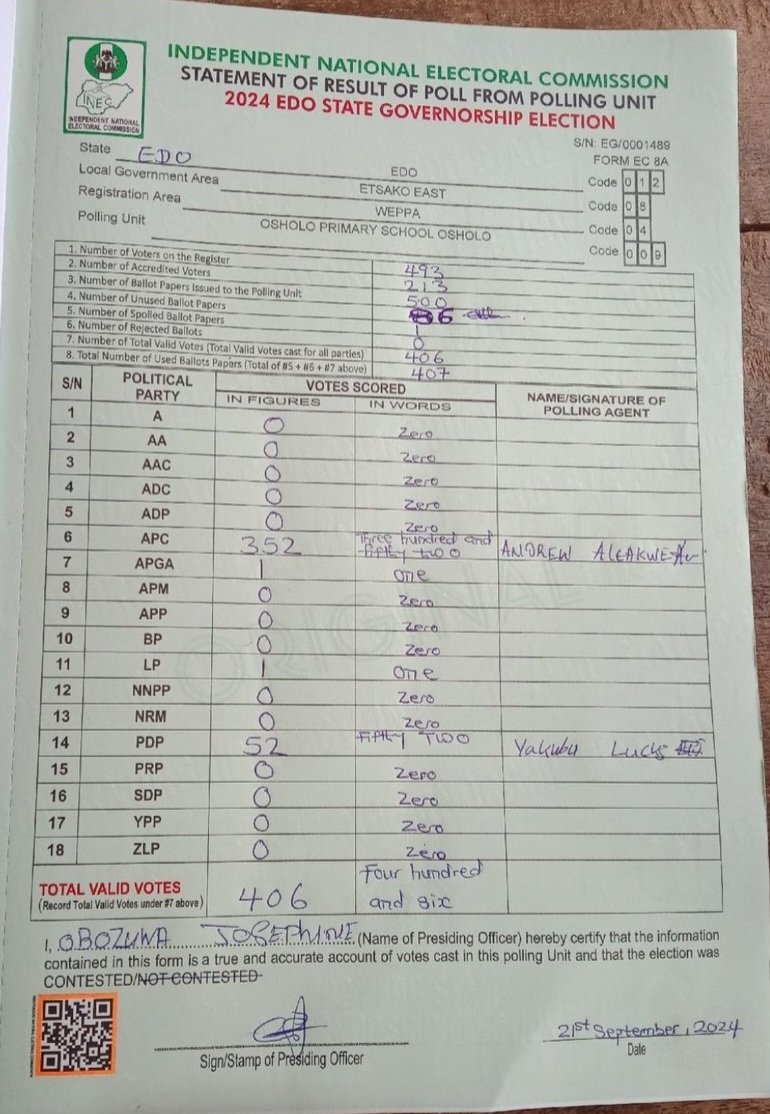 INDEPENDENT NATIONAL ELECTORAL COMMISSION
STATEMENT OF RESULT OF POLL FROM POLLING UNIT
2024 EDO STATE GOVERNORSHIP ELECTION
INEC
INDEPENDENT NATIONAL
ELECTORAL COMMISSION
S/N: EG/0001489
FORM EC 8A
State EDO EDO Code 0 1 2
Local Government Area ETSAKO EAST Code 0 8
Registration Area WEPPA Code 0 4
Polling Unit OSHOLO PRIMARY SCHOOL OSHOLO Code 0 0 9
1. Number of Voters on the Register 493
2. Number of Accredited Voters 213
3. Number of Ballot Papers Issued to the Polling Unit 500
4. Number of Unused Ballot Papers 86
5. Number of Spoiled Ballot Papers 1
6. Number of Rejected Ballots 0
7. Number of Total Valid Votes (Total Valid Votes cast for all parties) 406
8. Total Number of Used Ballots Papers (Total of #5 + #6 + #7 above) 407
S/N POLITICAL PARTY VOTES SCORED NAME/SIGNATURE OF POLLING AGENT
IN FIGURES IN WORDS
1 A 0 Zero
2 AA 0 Zero
3 AAC 0 Zero
4 ADC 0 Zero
5 ADP 0 Zero
6 APC 352 Three hundred and fifity two ANDREW
7 APGA 1 one
8 APM 0 Zero
9 APP 0 Zero
10 BP 0 Zero
11 LP 1 one
12 NNPP 0 Zero
13 NRM 0 Zero
14 PDP 52 fifity TWO Yakubu
15 PRP 0 Zero
16 SDP 0 Zero
17 YPP 0 Zero
18 ZLP 0 Zero
ORIGINAL
TOTAL VALID VOTES 406 Four hundred
(Record Total Valid Votes under #7 above) and six
I, OBOZUWA JOSEPHINE (Name of Presiding Officer) hereby certify that the information
contained in this form is a true and accurate account of votes cast in this polling Unit and that the election was
CONTESTED/NOT CONTESTED
21st September, 2024
Sign/Stamp of Presiding Officer Date